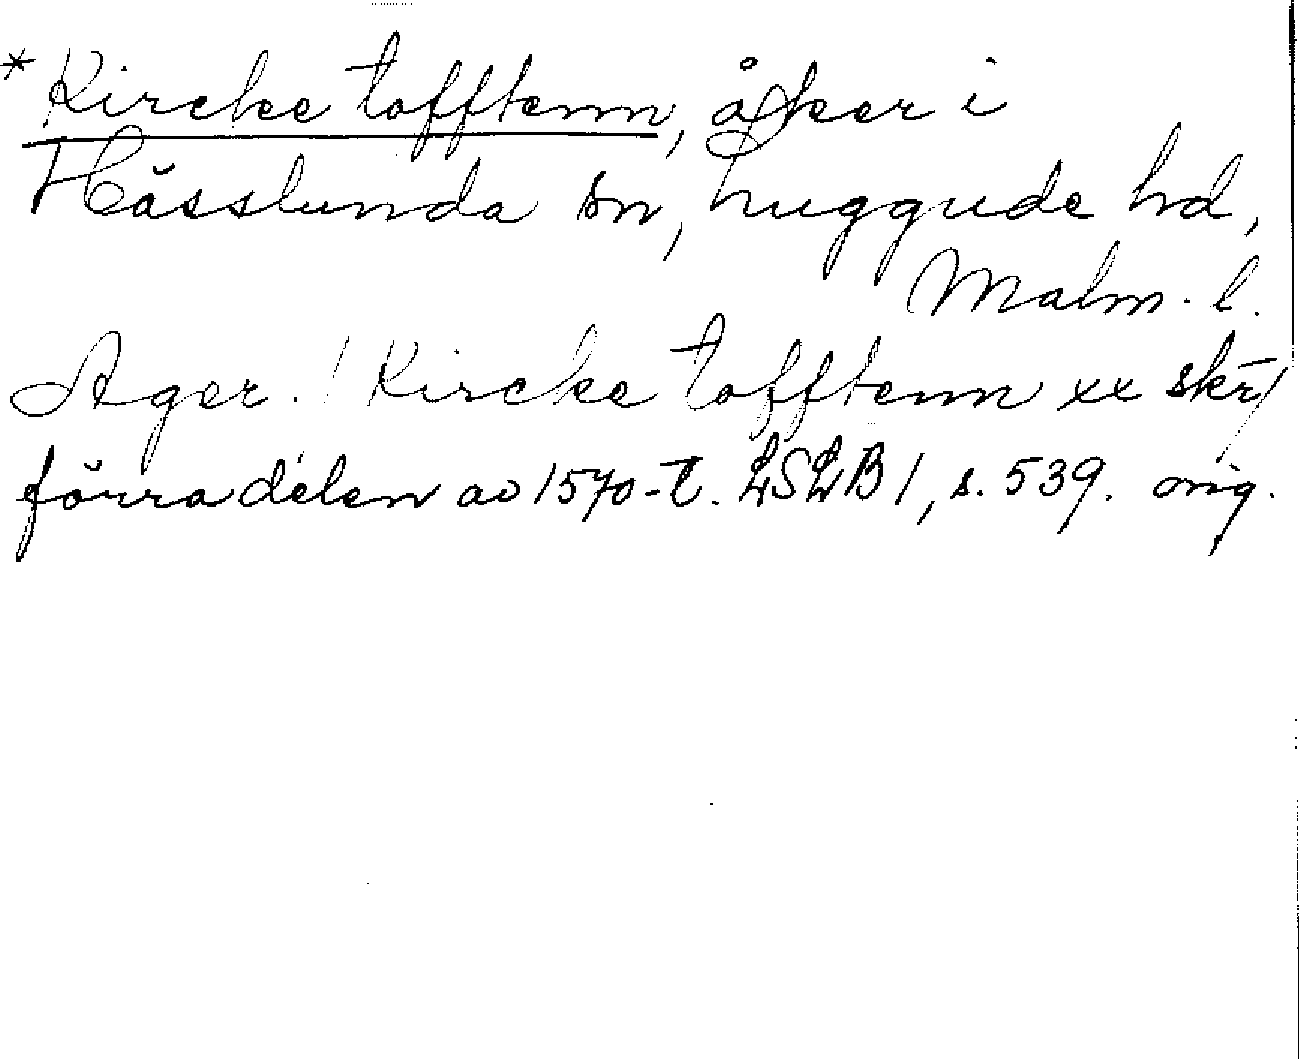 *Kircke tofftenn, åker i
Hässlunda sn, Luggude hd,
Malm. l.
Ager. / Kircke tofftenn xx skr/
förra delen av 1570-t. LSLB 1, s. 539. orig.